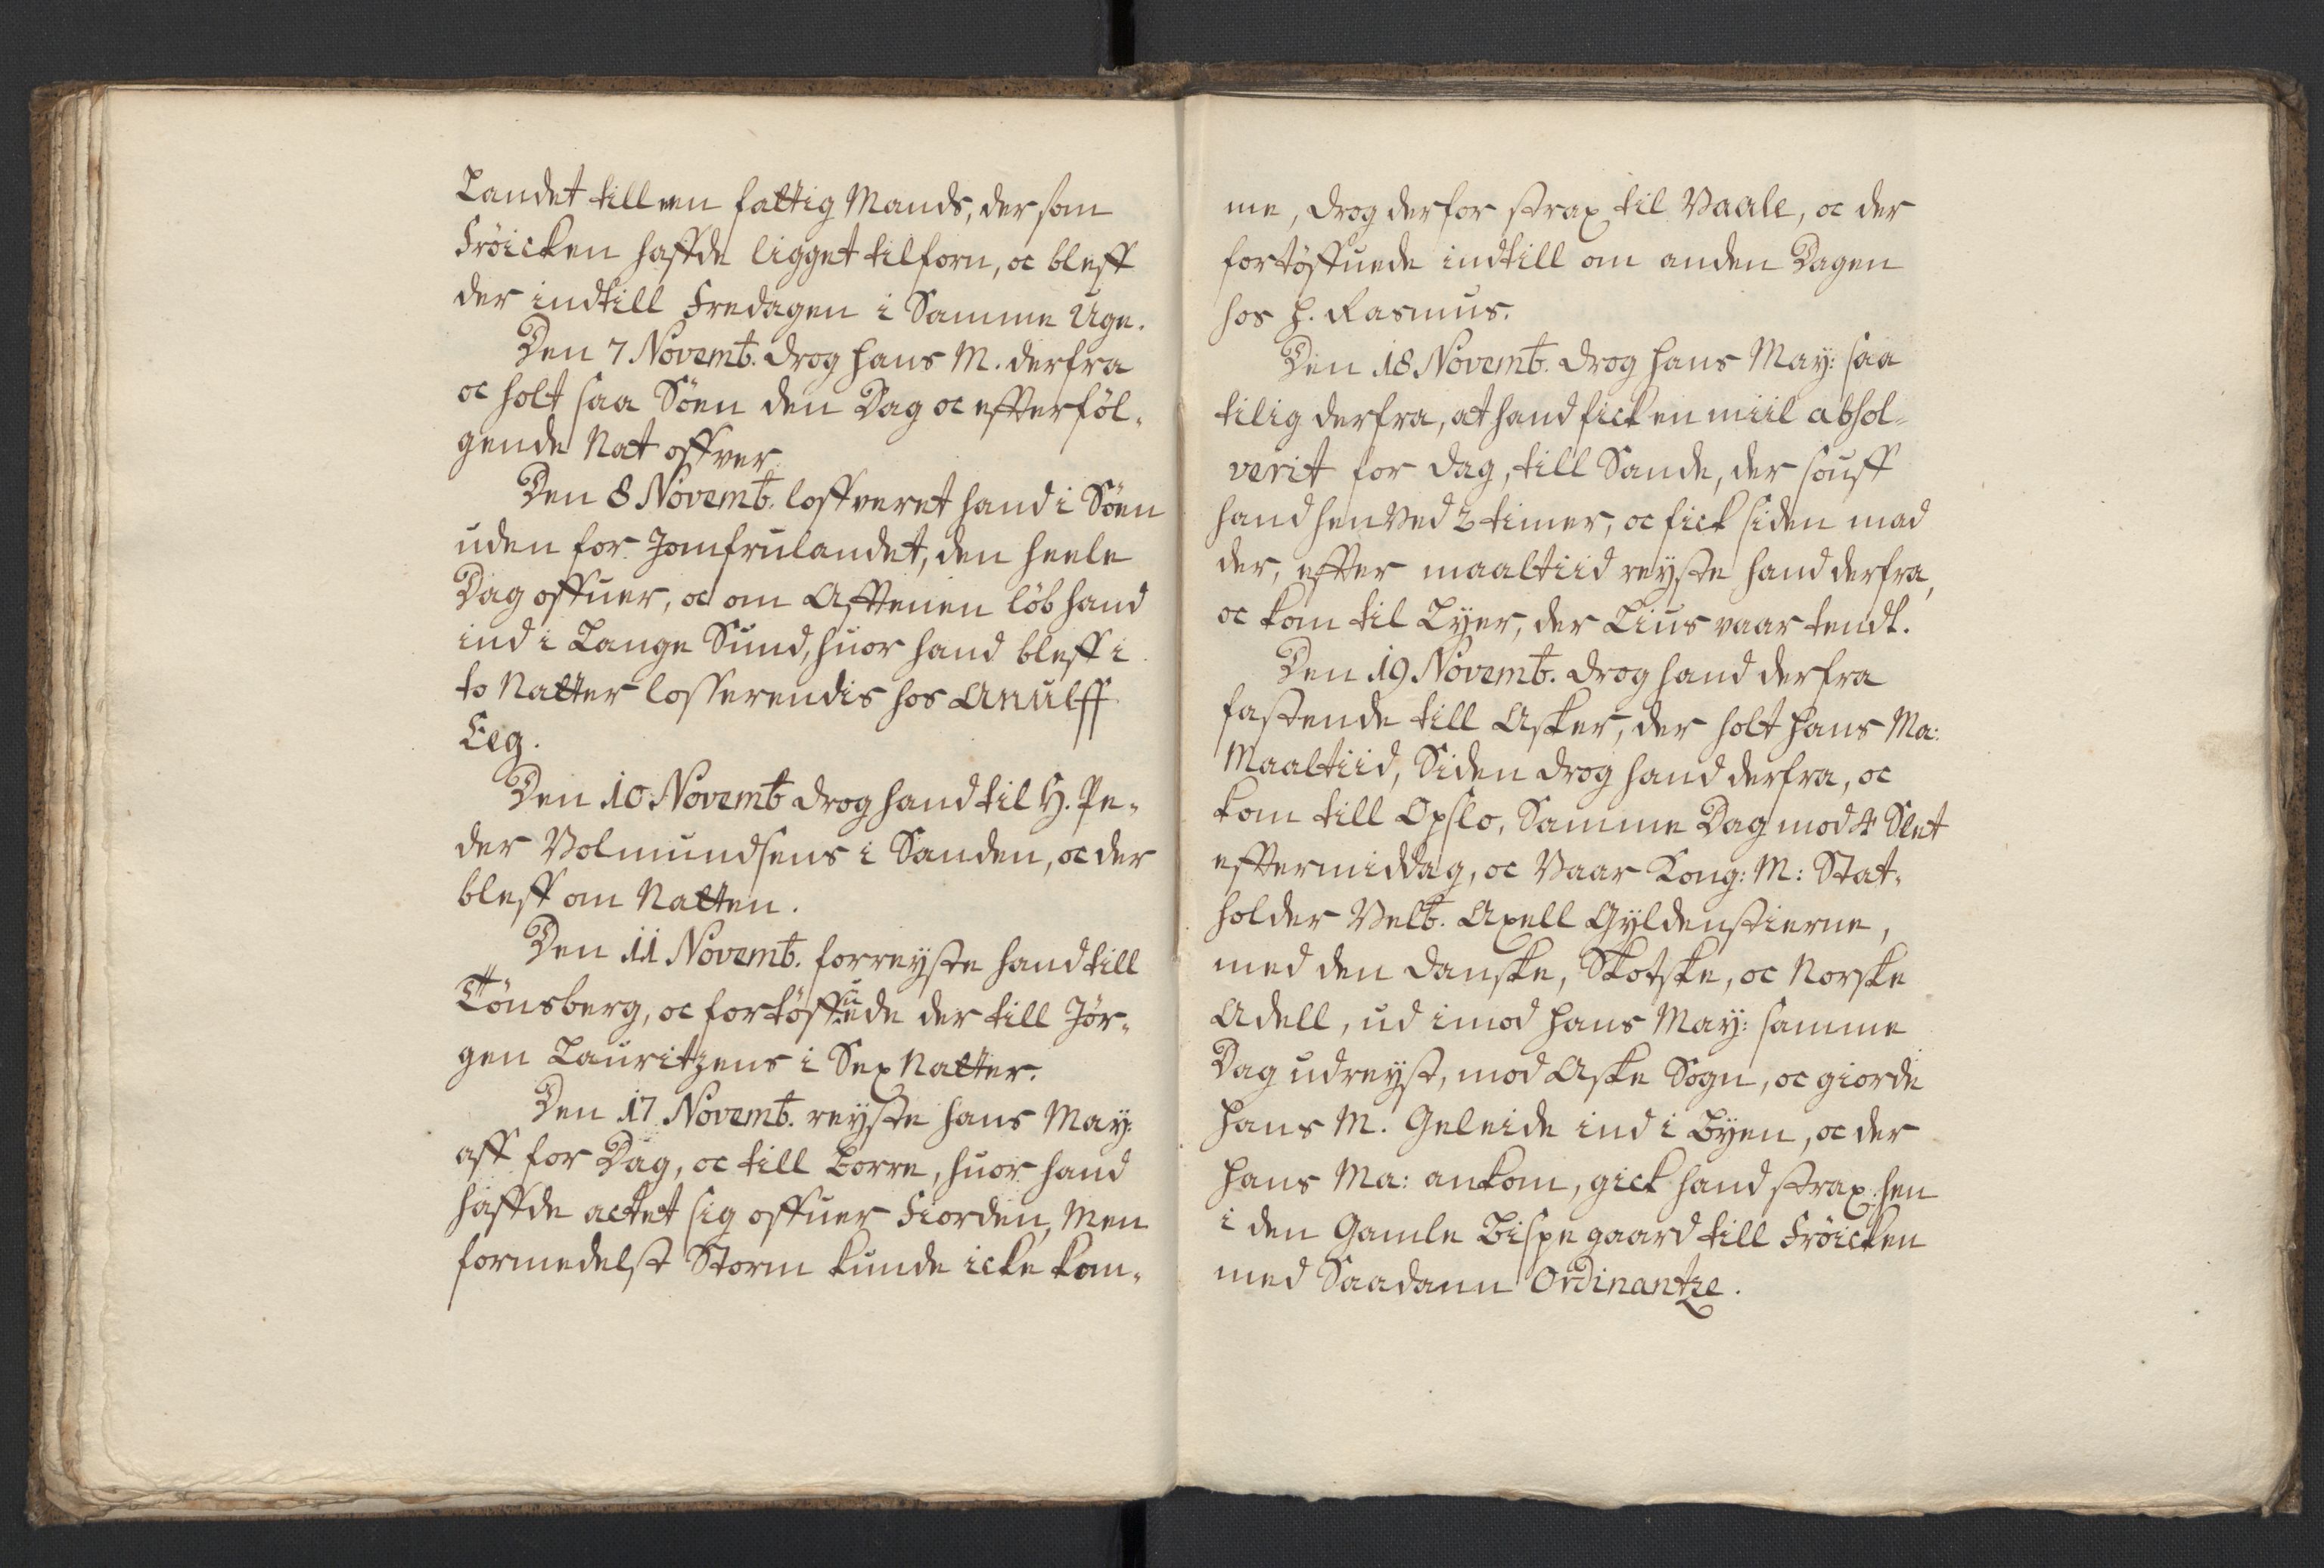 Landet till een fattig Mands, der som
Fröicken haffde ligget tilforn, oc bleff
der indtill Fredagen i Samme Uge.
Den 7 Novemb. drog hans M. derfra
oc holt saa Söen den Dag oc efterföl-
gende Nat offver
Den 8 Novemb. loffveret hand i Söen
uden for Jomfrulandet, den heele
Dag offuer, oc om Afftenen löb hand
ind i Lange Sund, huor hand bleff i
to Natter losserendis hos Anulff
Eeg.
Den 10 Novemb drog hand til H. Pe-
der Volmundsens i Sanden, oc der
bleff om Natten.
Den 11 Novemb. forreyste hand till
Tönsberg, oc fortöffuede der till Jör-
gen Lauritzens i Sex Natter.
Den 17 Novemb. reyste hans May:
aff for Dag, oc till Borre, huor hand
haffde actet sig offuer Fiorden, Men
formedelst Storm kunde icke kom-
me, drog derfor strax til Vaale, oc der
fortöffuede indtill om anden Dagen
hos H. Rasmus.
Den 18 Novemb. drog hans May: saa
tilig derfra, at hand fick en miil absol-
verit for dag, till Sande, der souff
hand hen ved 2 timer, oc fick siden mad
der, effter maaltiid reyste hand derfra,
oc kom til Lyer, der Lius vaar tendt.
Den 19 Novemb. drog hand derfra
fastende till Asker, der holt Hans Ma:
Maaltiid, Siden drog hand derfra, oc
kom till Opslo, Samme Dag mod 4 Slet
efftermiddag, oc Vaar Kong: M: Stat-
holder Velb. Axell Gyldenstierne,
med den danske, Skotske, oc Norske
Adell, ud imod Hans May: samme
Dag udreyst, mod Aske Sogn, oc giorde
Hans M. Geleide ind i Byen, oc der
Hans Ma: ankom, gick hand strax hen
i den Gamle Bispegaard till Fröicken
med Saadann Ordinantze.